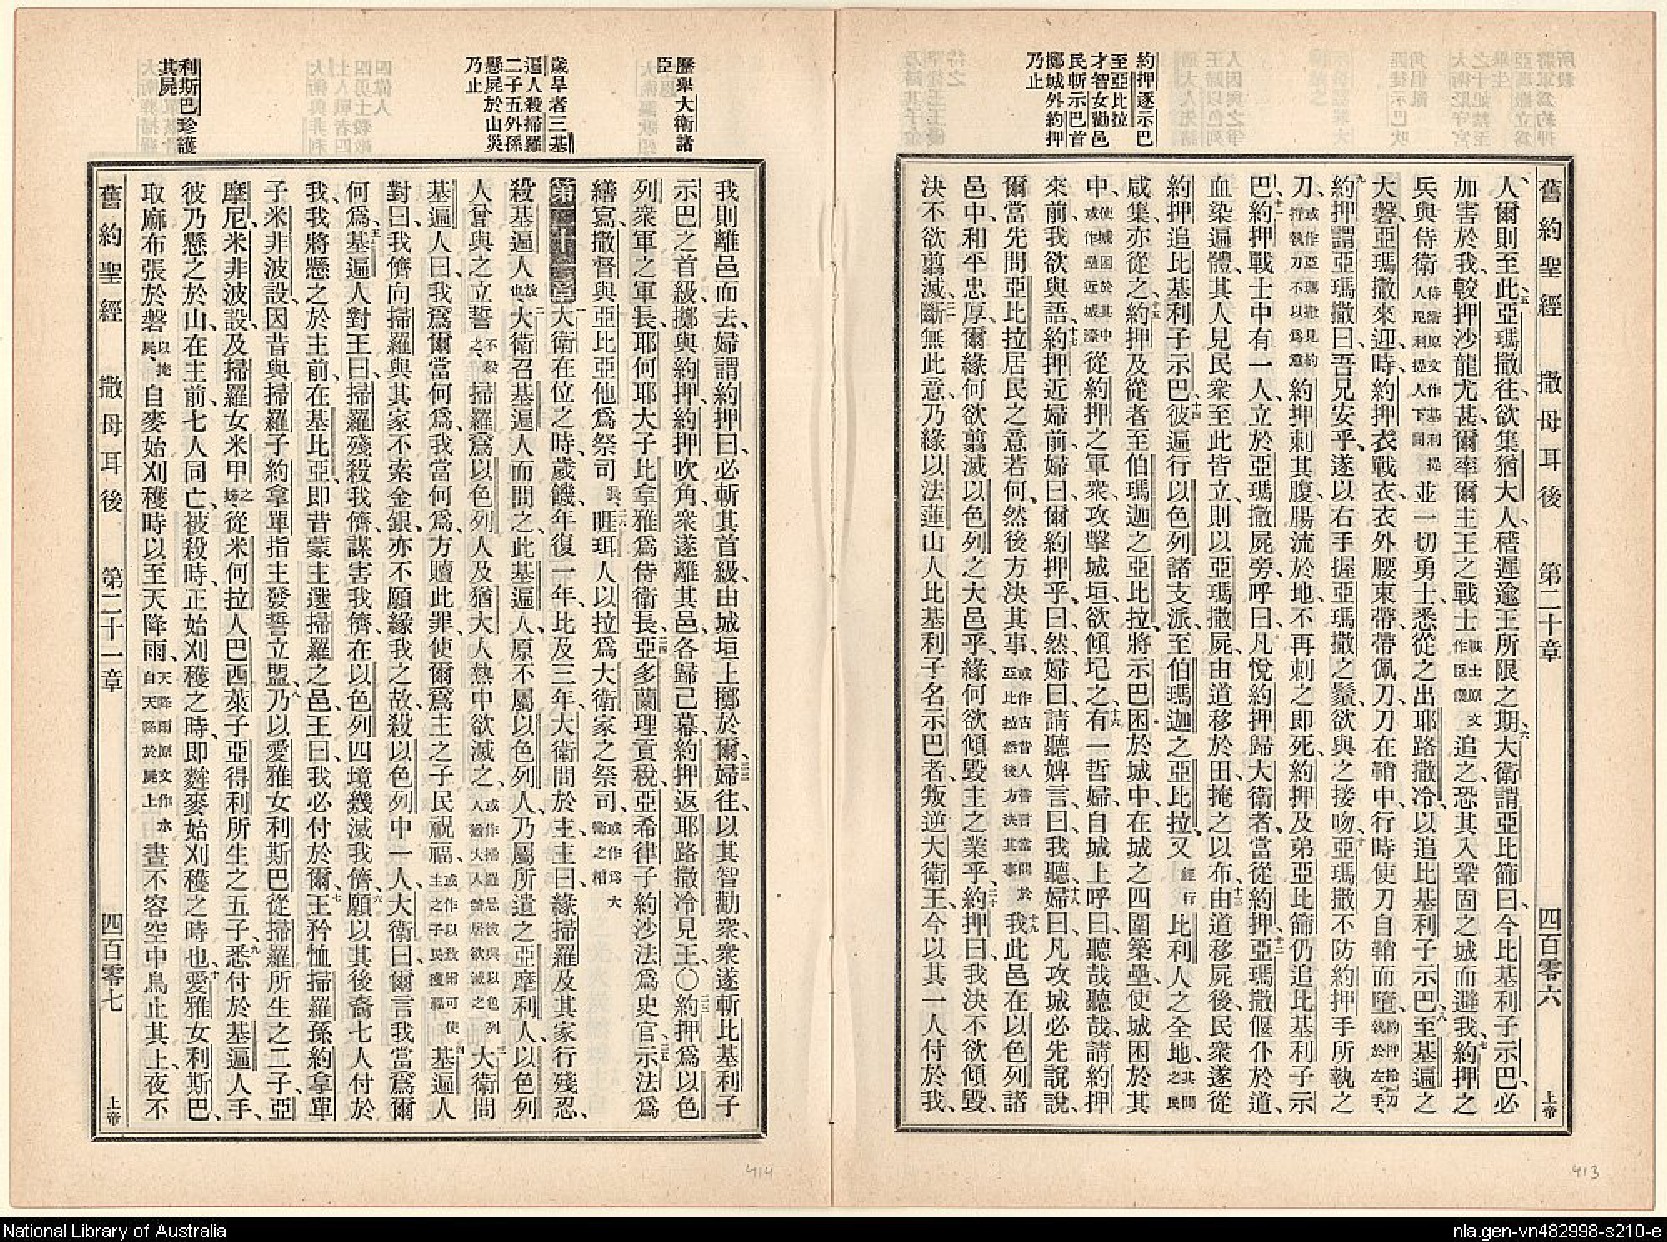 約押逐示巴
至亞比拉
才智女勸邑
民斬示巴首
擲城外約押
乃止
舊約聖經 撒母耳後 第二十章 四百零六 上帝
人爾則至此亞瑪撒往欲集猶大人稽遲逾王所限之期大衛謂亞比篩曰今比基利子示巴必
加害於我較押沙龍尤甚爾率爾主王之戰士戰士原文作臣僕追之恐其入鞏固之城而避我約押之
兵與侍衛侍衛原文作基利提人比利提人下同並一切勇士悉從之出耶路撒冷以追比基利子示巴至基遍之
大磐亞瑪撒來迎時約押衣戰衣衣外腰束帶帶佩刀刀在鞘中行時使刀自鞘而墮
約押謂亞瑪撒曰吾兄安乎遂以右手握亞瑪撒之鬚欲與之接吻亞瑪撒不防約押手所執之
刀約押刺其腹腸流於地不再刺之即死約押及弟亞比篩仍追比基利子示
巴約押戰士中有一人立於亞瑪撒屍旁呼曰凡悅約押歸大衛者當從約押亞瑪撒偃仆於道
血染遍體其人見民眾至此皆立則以亞瑪撒屍由道移於田掩之以布由道移屍後民眾遂從
約押追比基利子示巴彼遍行以色列諸支派至伯瑪迦之亞比拉又經行比利人之全地其間之民
咸集亦從之約押及從者至伯瑪迦之亞比拉將示巴困於城中在城之四圍築壘使城困於其
中從約押之軍眾攻擊城垣欲傾圮之有一哲婦自城上呼曰聽哉聽哉請約押
來前我欲與語約押近婦前婦曰爾約押乎曰然婦曰請聽婢言曰我聽婦曰凡攻城必先說說
爾當先問亞比拉居民之意若何然後方決其事我此邑在以色列諸
邑中和平忠厚爾緣何欲翦滅以色列之大邑乎緣何欲傾毀主之業乎約押曰我決不欲傾毀
決不欲翦滅斷無此意乃緣以法蓮山人比基利子名示巴者叛逆大衛王今以其一人付於我
413
歷舉大衛諸
臣
歲旱者三基
遍人殺掃羅
二子五外孫
懸屍於山災
乃止
利斯巴珍護
其屍
我則離邑而去婦謂約押曰必斬其首級由城垣上擲於爾婦往以其智勸眾眾遂斬比基利子
示巴之首級擲與約押約押吹角眾遂離其邑各歸己幕約押返耶路撒冷見王〇約押為以色
列眾軍之軍長耶何耶大子比拿雅為侍衛長亞多蘭理貢稅亞希律子約沙法為史官示法為
繕寫撒督與亞比亞他為祭司睚珥人以拉為大衛家之祭司或作為大衛之相
第二十一章大衛在位之時歲饑年復一年比及三年大衛問於主主曰緣掃羅及其家行殘忍
殺基遍人故也大衛召基遍人而問之此基遍人原不屬以色列人乃屬所遺之亞摩利人以色列
人曾與之立誓不殺之掃羅為以色列人及猶大人熱中欲滅之大衛問
基遍人曰我為爾當何為我當何為方贖此罪使爾為主之子民祝福基遍人
對曰我儕向掃羅與其家不索金銀亦不願緣我之故殺以色列中一人大衛曰爾言我當為爾
何為基遍人對王曰掃羅殘殺我儕謀害我儕在以色列四境幾滅我儕願以其後裔七人付於
我我將懸之於主前在基比亞即昔蒙主選掃羅之邑王曰我必付於爾王矜恤掃羅孫約拿單
子米非波設因昔與掃羅子約拿單指主發誓立盟乃以愛雅女利斯巴從掃羅所生之二子亞
摩尼米非波設及掃羅女米甲之姊從米何拉人巴西萊子亞得利所生之五子悉付於基遍人手
彼乃懸之於山在主前七人同亡被殺時正始刈穫之時即麰麥始刈穫之時也愛雅女利斯巴
取麻布張於磐以掩屍自麥始刈穫時以至天降雨天降雨原文作水自天降於屍上晝不容空中鳥止其上夜不
舊約聖經 撒母耳後 第二十一章 四百零七 上帝
414
National Library of Australia
nla.gen-vn482998-s210-e